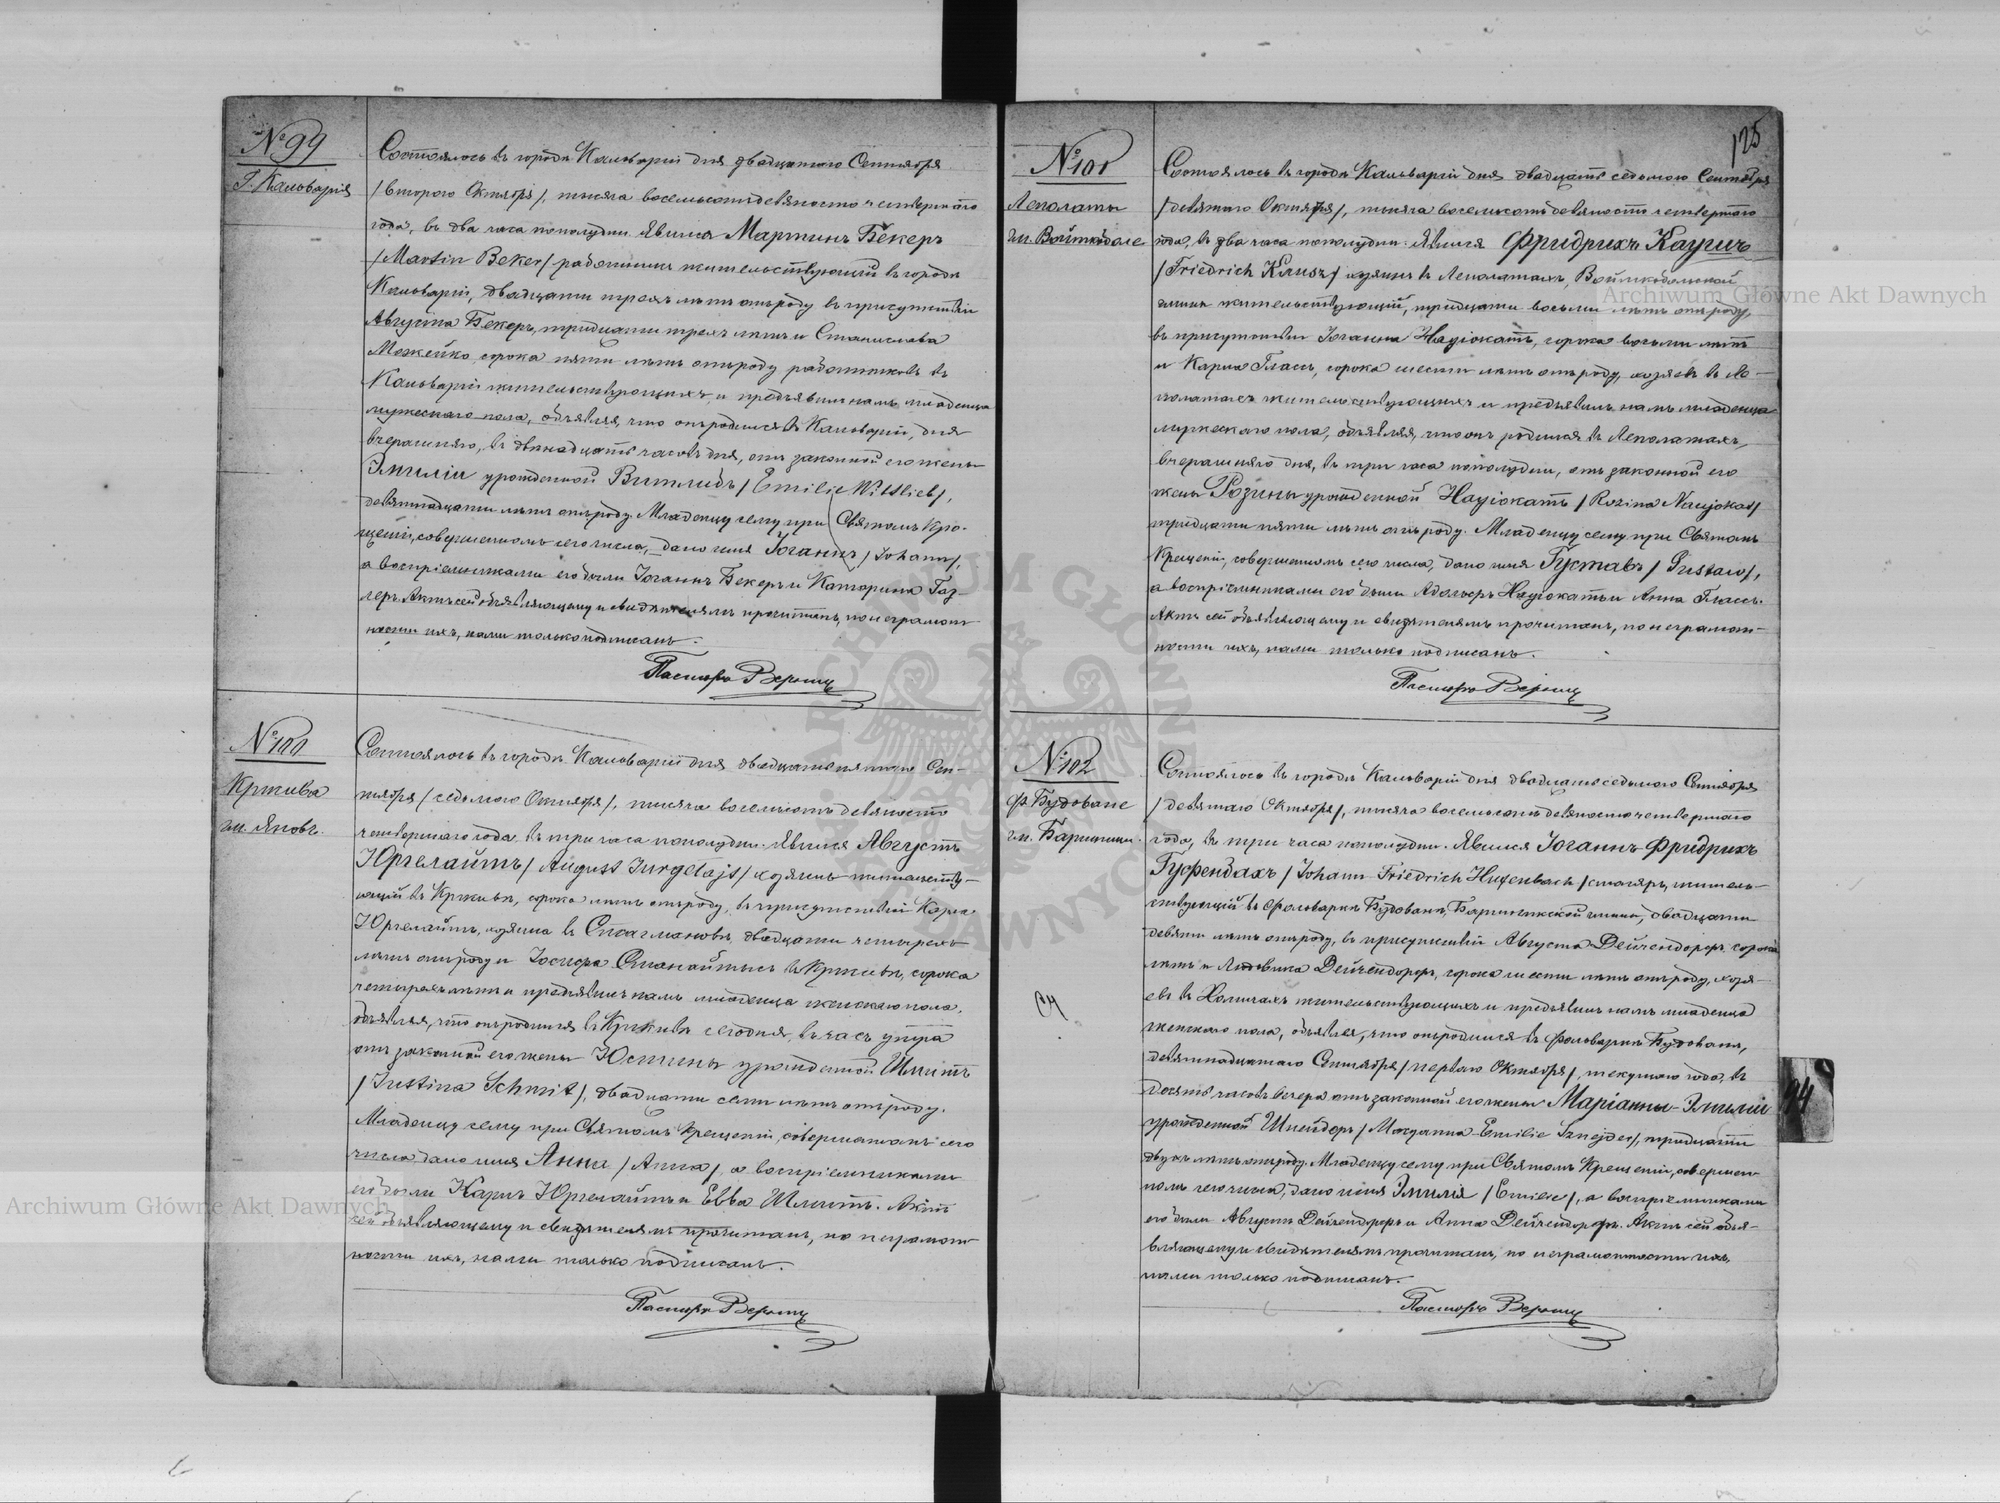 № 99
Г. Кальварія
Состоялось въ городѣ Кальваріи дня двадцатаго Сентября
/втораго Октября/, тысяча восемьсотъ девяносто четвертаго
года, въ два часа пополудни. Явился Мартинъ Бекеръ
/Martin Beker/ работникъ жительствующій въ городѣ
Кальваріи, двадцати трехъ лѣтъ отъ роду въ присутствіи
Августа Бекеръ, тридцати трехъ лѣтъ и Станислава
Можейко, сорока пяти лѣтъ отъ роду работниковъ въ
Кальваріи жительствующихъ, и предъявилъ намъ младенца
мужескаго пола, объявляя, что онъ родился въ Кальваріи, дня
вчерашняго, въ двѣнадцать часовъ дня, отъ законной его жены
Эмиліи урожденной Витлибъ /Emilie Wittlieb/,
девятнадцати лѣтъ отъ роду. Младенцу сему при Святомъ Кре-
щеніи, совершенномъ сего числа, дано имя Іоганнъ /Johann/,
а воспріемниками его были Іоганнъ Бекеръ и Катарина Газ-
леръ. Актъ сей объявляющему и свидѣтелямъ прочитанъ, по неграмот-
ности ихъ, нами только подписанъ.
Пасторъ
№ 100
Кржива
гм. Яновъ.
Состоялось въ городѣ Кальваріи дня двадцать пятаго Сен-
тября /седьмаго Октября/, тысяча восемьсотъ девяносто
четвертаго года, въ три часа пополудни. Явился Августъ
Юргелайтъ /August Jurgelajt/ хозяинъ жительству-
ющій въ Крживѣ, сорока лѣтъ отъ роду, въ присутствіи Карла
Юргелайтъ, хозяина въ двадцати четырехъ
лѣтъ отъ роду и Іосифа въ Крживѣ, сорока
четырехъ лѣтъ и предъявилъ намъ младенца женскаго пола,
объявляя, что онъ родился въ Крживѣ сегодня, въ часъ утра
отъ законной его жены Юстины урожденной Шмитъ
/Justina Schmit/, двадцати семи лѣтъ отъ роду.
Младенцу сему при Святомъ Крещеніи, совершенномъ сего
числа, дано имя Анна /Anna/, а воспріемниками
его были Карлъ Юргелайтъ и Евва Шмитъ. Актъ
сей объявляющему и свидѣтелямъ прочитанъ, по неграмот-
ности ихъ, нами только подписанъ.
Пасторъ
125
№ 101
Лепалаты
гм. Войткобole
Состоялось въ городѣ Кальваріи дня двадцать седьмаго Сентября
/девятаго Октября/, тысяча восемьсотъ девяносто четвертаго
года, въ два часа пополудни. Явился Фридрихъ
/Friedrich хозяинъ въ Лепалатахъ, Войткобольской
гмины жительствующій, тридцати восьми лѣтъ отъ роду,
въ присутствіи Іоганна Наујокатъ, сорока восьми лѣтъ
и Карла Глассъ, сорока шести лѣтъ отъ роду, хозяевъ въ Ле-
палатахъ жительствующихъ и предъявилъ намъ младенца
мужескаго пола, объявляя, что онъ родился въ Лепалатахъ,
вчерашняго дня, въ три часа пополудни, отъ законной его
жены Розины урожденной Наујокатъ /Rozina Naujokat/
тридцати пяти лѣтъ отъ роду. Младенцу сему при Святомъ
Крещеніи, совершенномъ сего числа, дано имя Густавъ /Gustaw/,
а воспріемниками его были Адольфъ Наујокатъ и Анна Глассъ.
Актъ сей объявляющему и свидѣтелямъ прочитанъ, по неграмот-
ности ихъ, нами только подписанъ.
Пасторъ
№ 102
ф. Будоване
гм.
Состоялось въ городѣ Кальваріи дня двадцать седьмаго Сентября
/девятаго Октября/, тысяча восемьсотъ девяносто четвертаго
года, въ три часа пополудни. Явился Іоганнъ Фридрихъ
Гуфенбахъ /Johann Friedrich Hufenbach/ столяръ, житель-
ствующій въ фольваркѣ гмины, двадцати
девяти лѣтъ отъ роду, въ присутствіи Августа Дейчендорфъ, сорока
лѣтъ и Людвика Дейчендорфъ, сорока шести лѣтъ отъ роду, хозя-
евъ въ жительствующихъ и предъявилъ намъ младенца
женскаго пола, объявляя, что онъ родился въ фольваркѣ
девятнадцатаго Сентября /перваго Октября/, текущаго года, въ
десять часовъ вечера отъ законной его жены Маріанны-Эмиліи
урожденной Шнейдеръ /Maryanna-Emilie Sznejder/, тридцати
двухъ лѣтъ отъ роду. Младенцу сему при Святомъ Крещеніи, совершен-
номъ сего числа, дано имя Эмилія /Emilie/, а воспріемниками
его были Августъ Дейчендорфъ и Анна Дейчендорфъ. Актъ сей объя-
вляющему и свидѣтелямъ прочитанъ, по неграмотности ихъ,
нами только подписанъ.
Пасторъ
94
Archiwum Główne Akt Dawnych
Archiwum Główne Akt Dawnych
ARCHIWUM GŁÓWNE AKT DAWNYCH